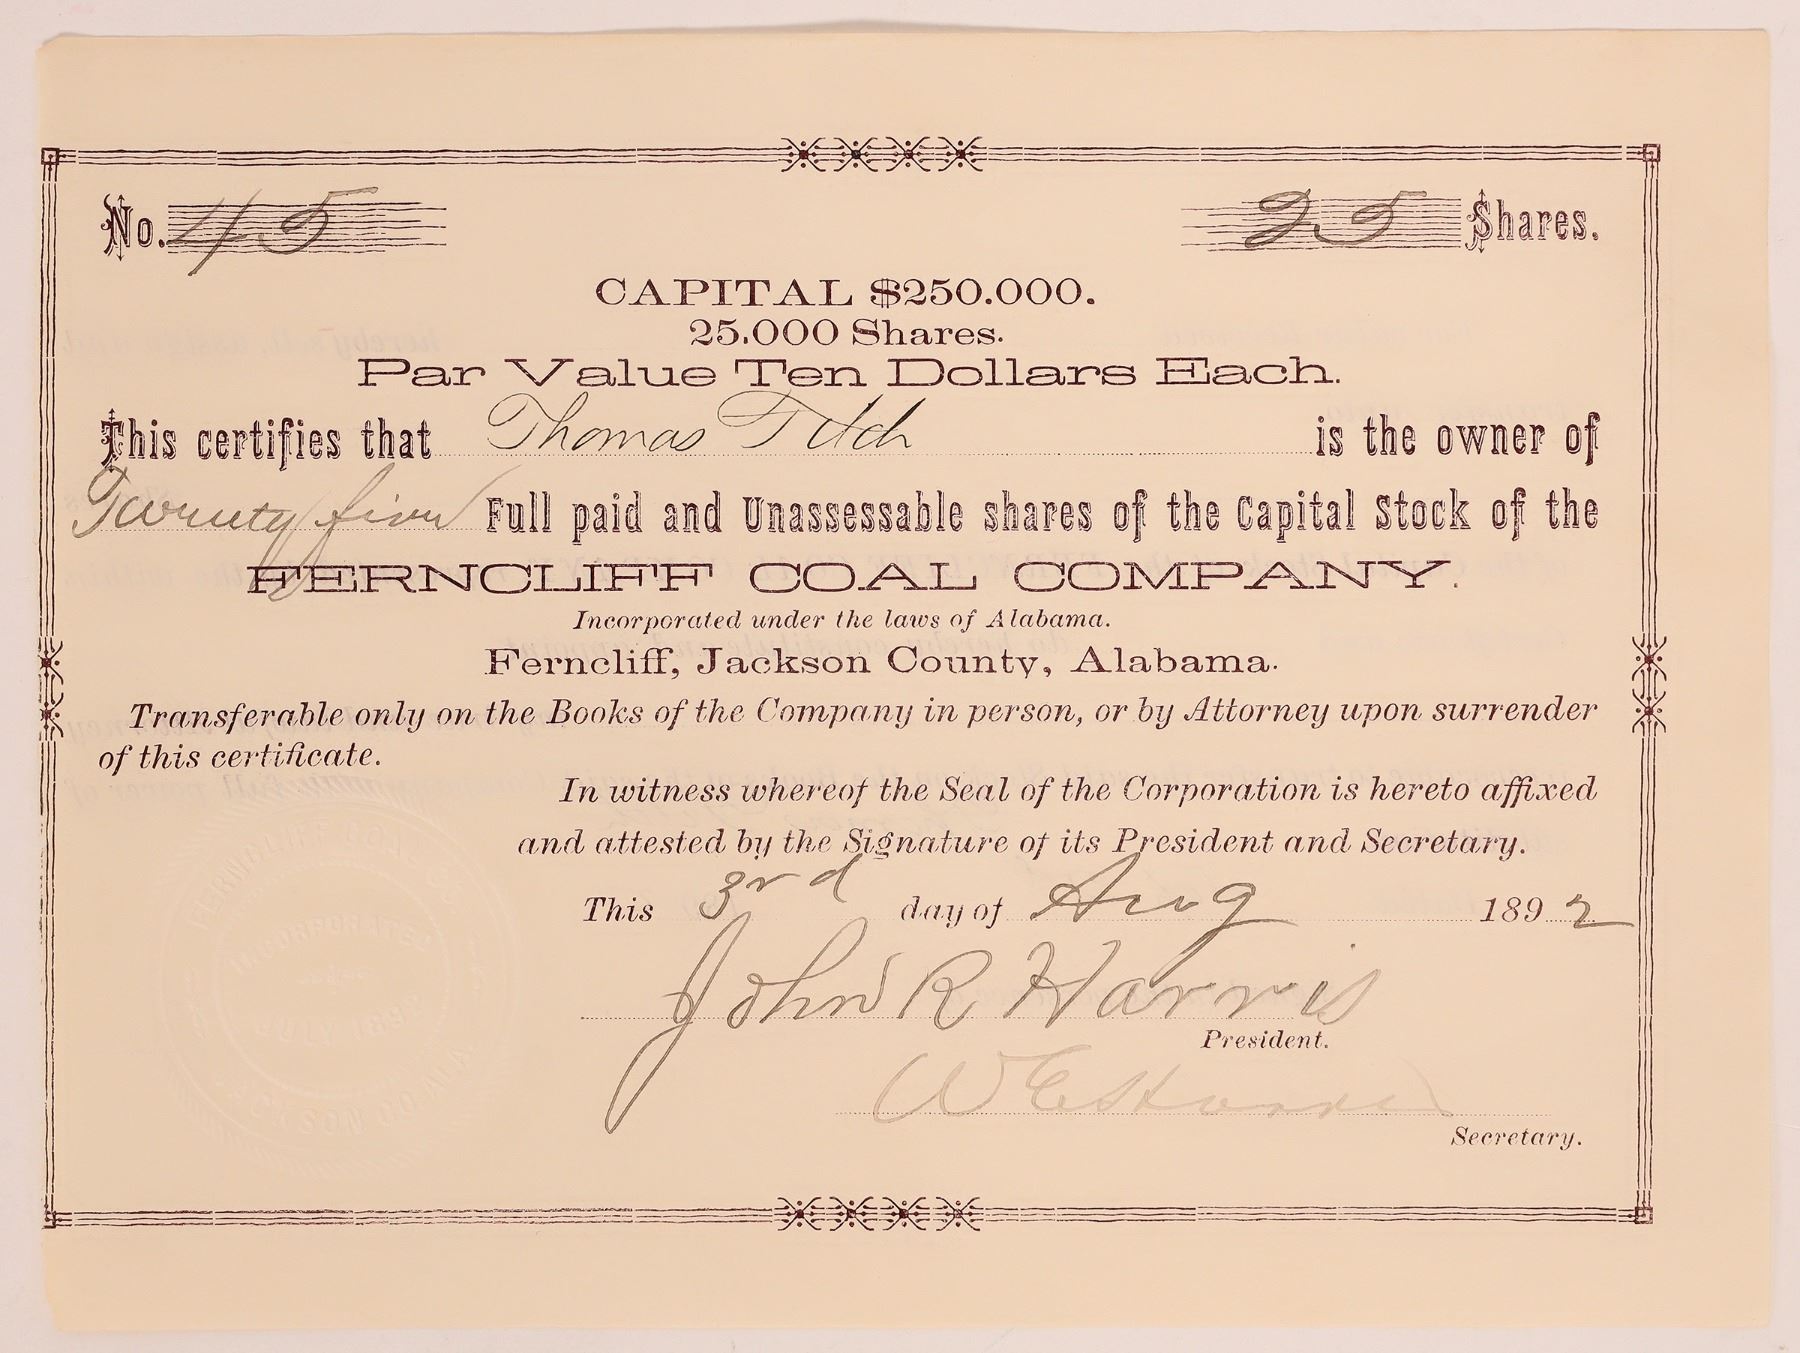 No. 45 25 Shares.
CAPITAL $250.000.
25.000 Shares.
Par Value Ten Dollars Each.
This certifies that Thomas Fitch is the owner of
Twenty five Full paid and Unassessable shares of the Capital Stock of the
FERNCLIFF COAL COMPANY.
Incorporated under the laws of Alabama.
Ferncliff, Jackson County, Alabama.
Transferable only on the Books of the Company in person, or by Attorney upon surrender
of this certificate.
In witness whereof the Seal of the Corporation is hereto affixed
and attested by the Signature of its President and Secretary.
This 3rd day of Aug 1892
John R Harris
President.
W E
Secretary.
FERNCLIFF COAL CO.
INCORPORATED
JULY 189
JACKSON CO. ALA.